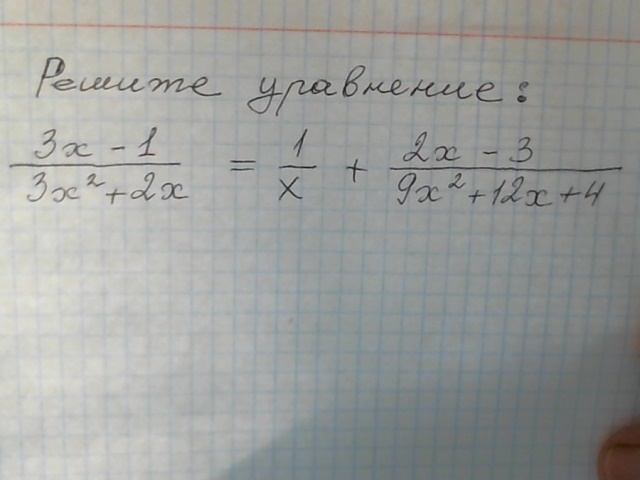 Решите уравнение:
3x - 1 / 3x² + 2x = 1 / x + 2x - 3 / 9x² + 12x + 4